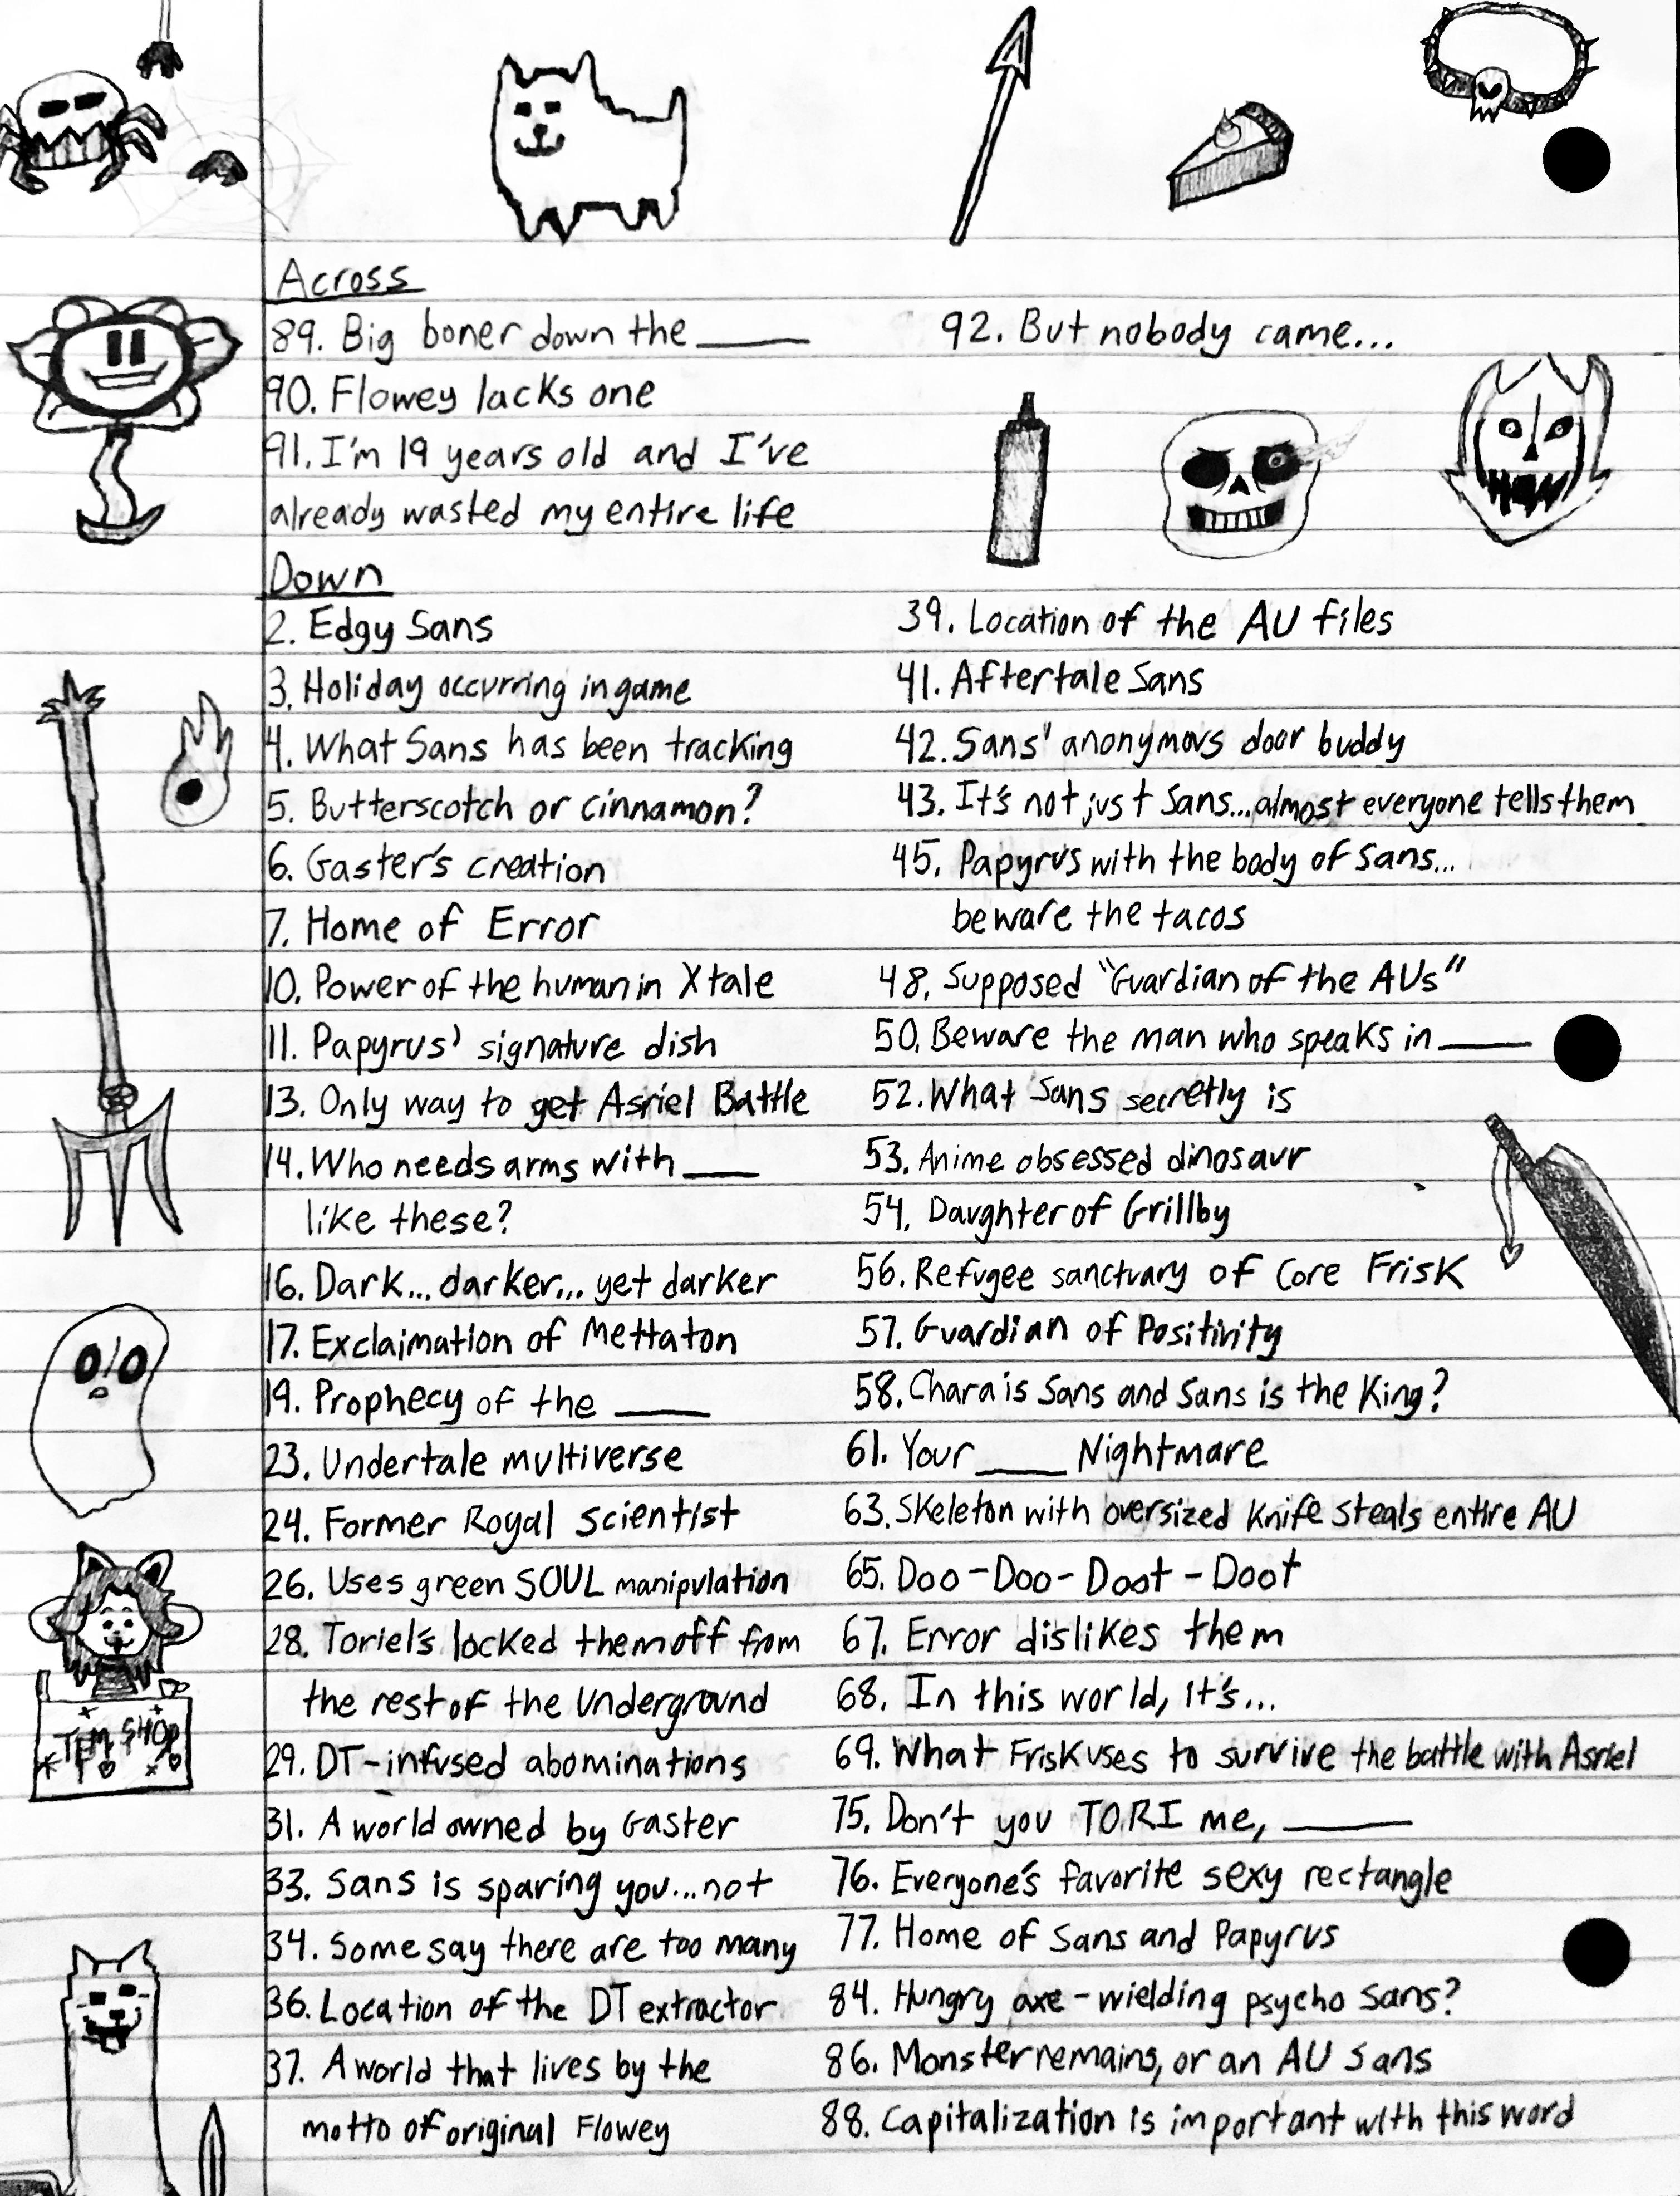 Across
89. Big boner down the ____
90. Flowey lacks one
91. I'm 19 years old and I've
already wasted my entire life
92. But nobody came...
Down
2. Edgy Sans
3. Holiday occurring ingame
4. What Sans has been tracking
5. Butterscotch or cinnamon?
6. Gaster's creation
7. Home of Error
10. Power of the human in Xtale
11. Papyrus' signature dish
13. Only way to get Asriel Battle
14. Who needs arms with ____
like these?
16. Dark... darker... yet darker
17. Exclaimation of Mettaton
19. Prophecy of the ____
23. Undertale multiverse
24. Former Royal Scientist
26. Uses green SOUL manipulation
28. Toriel's locked them off from
the rest of the Underground
29. DT-infused abominations
31. A world owned by Gaster
33. Sans is sparing you...not
34. Some say there are too many
36. Location of the DT extractor
37. A world that lives by the
motto of original Flowey
39. Location of the AU files
41. Aftertale Sans
42. Sans' anonymous door buddy
43. It's not just Sans...almost everyone tells them
45. Papyrus with the body of Sans...
beware the tacos
48. Supposed "Guardian of the AUs"
50. Beware the man who speaks in ____
52. What Sans secretly is
53. Anime obsessed dinosaur
54. Daughter of Grillby
56. Refugee sanctuary of Core Frisk
57. Guardian of Positivity
58. Chara is Sans and Sans is the King?
61. Your ____ Nightmare
63. Skeleton with oversized knife steals entire AU
65. Doo-Doo-Doot-Doot
67. Error dislikes them
68. In this world, it's...
69. What Frisk uses to survive the battle with Asriel
75. Don't you TORI me, ____
76. Everyone's favorite sexy rectangle
77. Home of Sans and Papyrus
84. Hungry axe-wielding psycho Sans?
86. Monster remains, or an AU Sans
88. Capitalization is important with this word
TEM SHOP